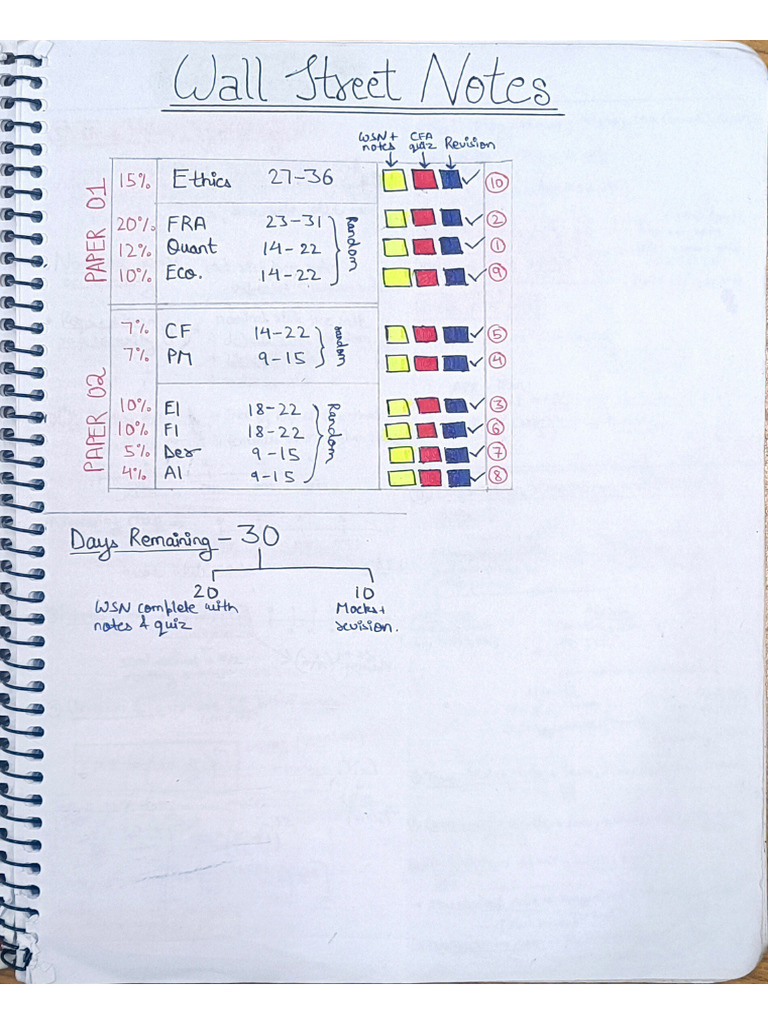 Wall Street Notes
WSN+ notes CFA quiz Revision
PAPER 01
15% Ethics 27-36 ✓ 10
20% FRA 23-31 ✓ 2
12% Quant 14-22 ✓ 1
10% Eco. 14-22 ✓ 9
Random
PAPER 02
7% CF 14-22 ✓ 5
7% PM 9-15 ✓ 4
random
10% EI 18-22 ✓ 3
10% FI 18-22 ✓ 6
5% Der 9-15 ✓ 7
4% AI 9-15 ✓ 8
Random
Days Remaining - 30
20 10
WSN complete with Mocks+
notes & quiz revision.